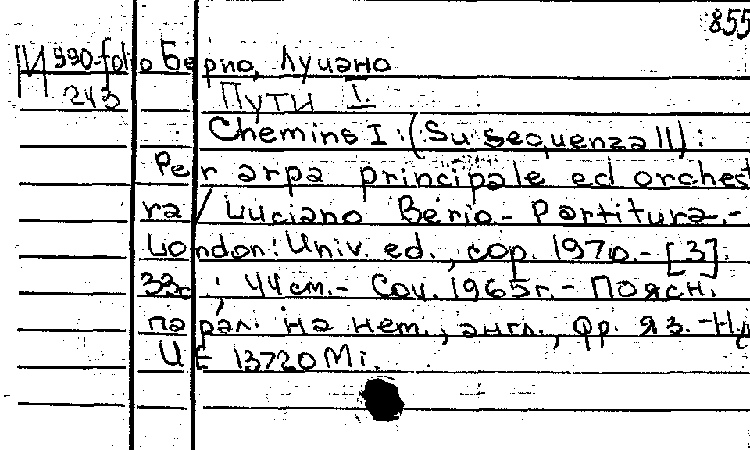 855
М 990-folio Берио, Лучано
243 Пути I.
Chemins I : (Su sequenza II) :
Per arpa principale ed orchest
ra / Luciano Berio.- Partitura.-
London: Univ. ed., cop. 1970.- [3],
33с ; 44 см.- Соч. 1965г.- Поясн.
парал. на нем., англ., фр. яз. -Н.д
UE 13720 Mi.